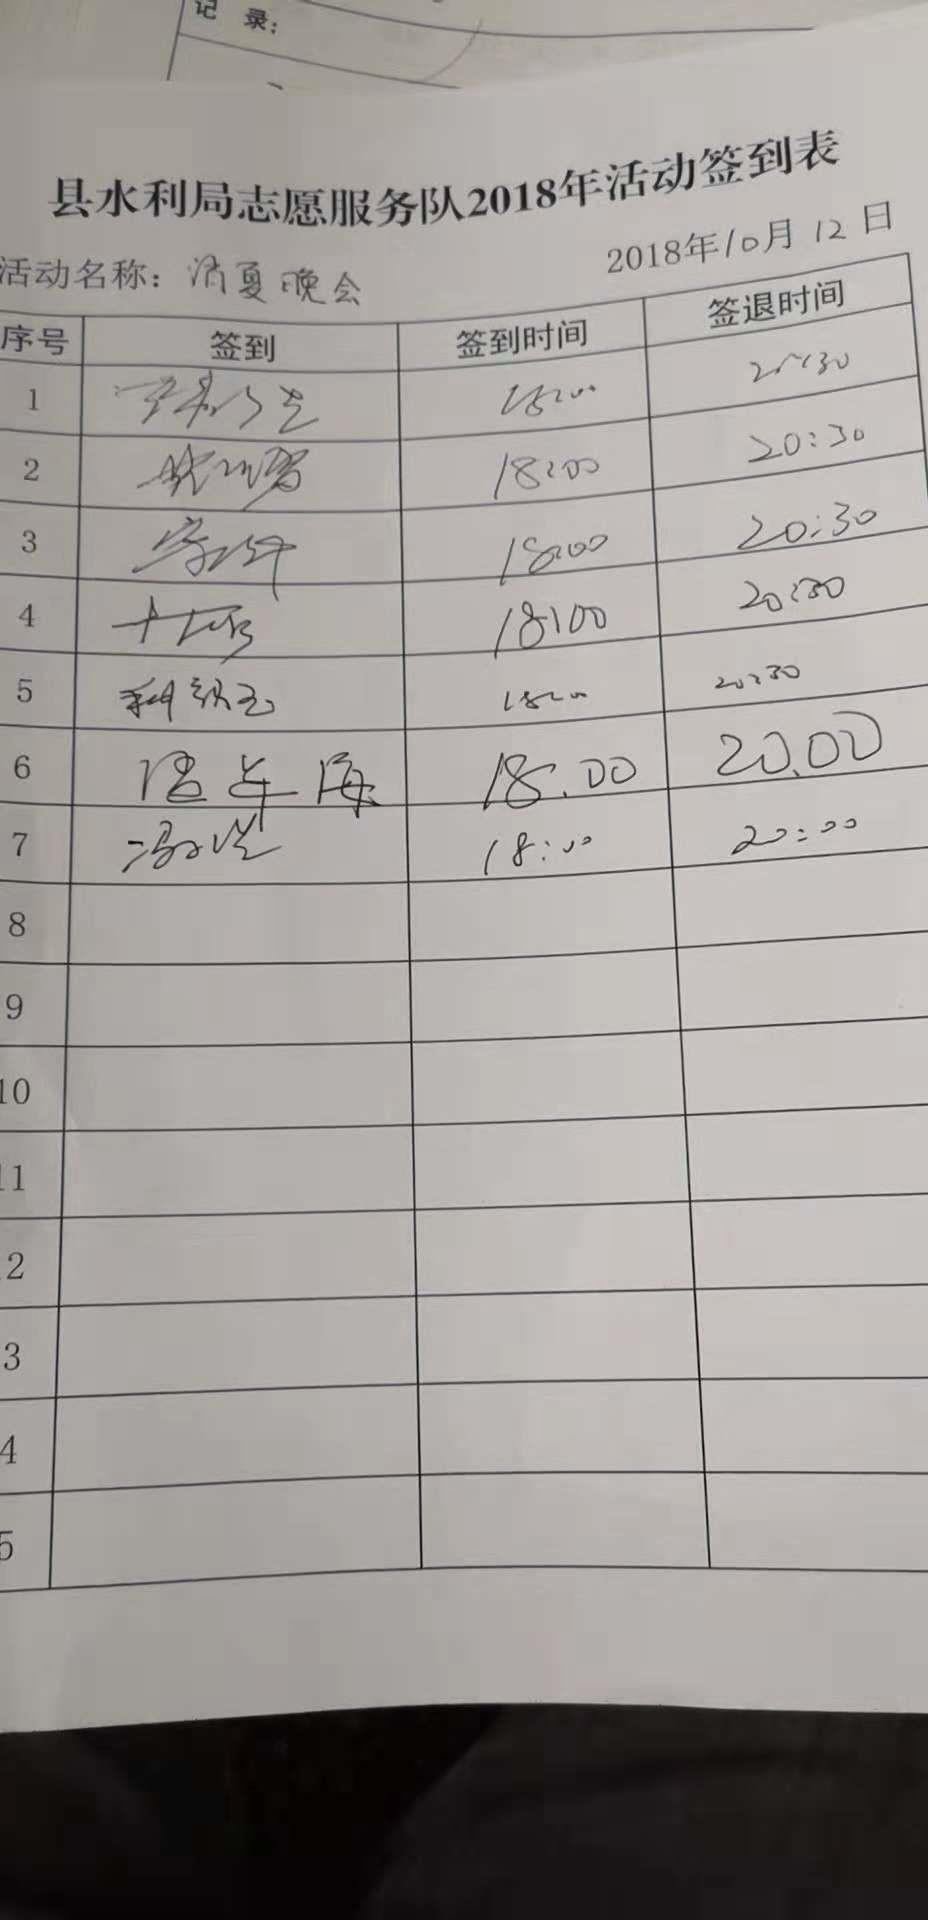 记 录:
县水利局志愿服务队2018年活动签到表
2018年10月12日
活动名称: 消夏晚会
序号 签到 签到时间 签退时间
1 18:00 20:30
2 18:00 20:30
3 18:00 20:30
4 18:00 20:30
5 18:00 20:30
6 18.00 20.00
7 18:00 20:00
8
9
10
11
2
3
4
5